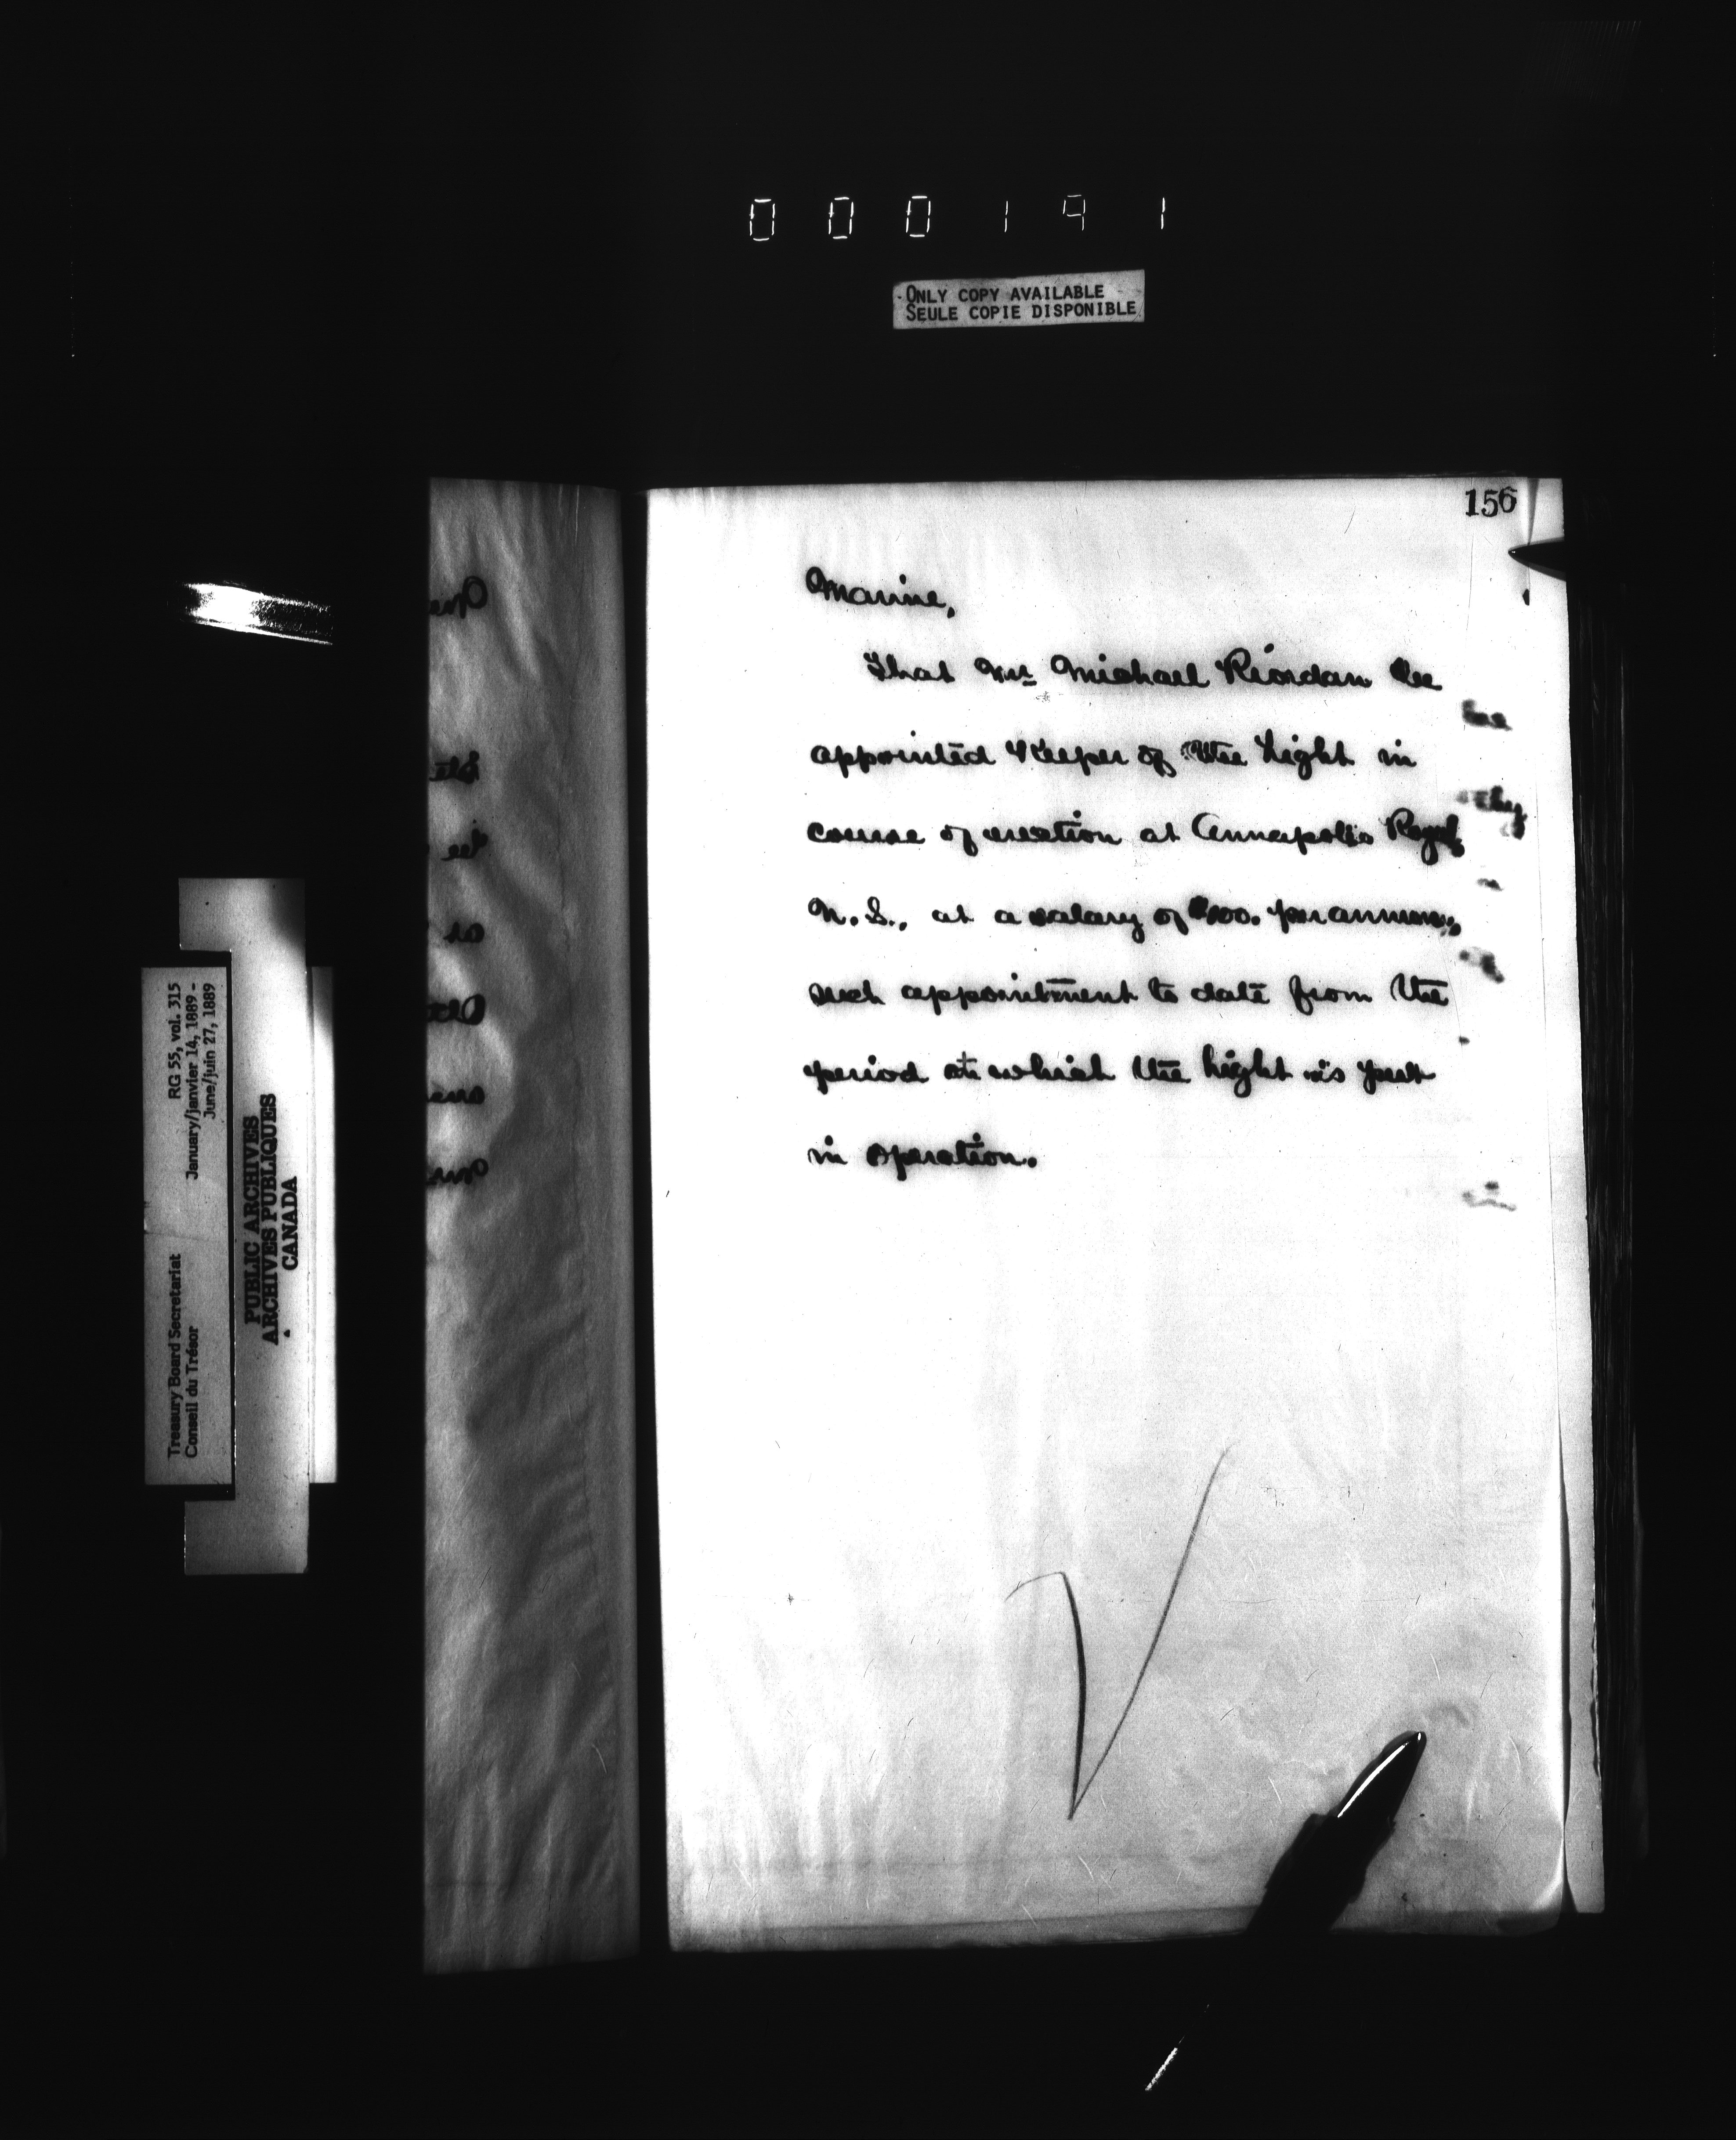 000191
ONLY COPY AVAILABLE
SEULE COPIE DISPONIBLE
156
Marine,
That Mr. Michael Riordan be
appointed Keeper of the Light in
course of erection at Annapolis Royal,
N.S., at a salary of $100. per annum,
such appointment to date from the
period at which the Light is put
in operation.
RG 55, vol. 315
January/janvier 14, 1889 -
June/juin 27, 1889
Treasury Board Secretariat
Conseil du Trésor
PUBLIC ARCHIVES
ARCHIVES PUBLIQUES
CANADA